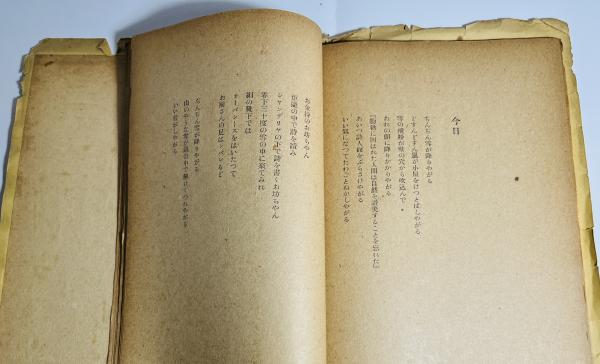 今日
ちんちん雪が降りやがる
どすんどすん風が小屋をけつとばしやがる
雪の微粉が壁の穴から吹込んで
おれの顔に降りかかりやがる
『勤勞に囚はれた人間は自然を讃美することを忘れた』
あいつ詩人面をぶらさげやがる
いい氣になつてたわごとぬかしやがる
お金持のお坊ちやん
炬燵の中で詩を讀み
シヤンデリヤの下で詩を書くお坊ちやん
零下三十度の雪の中に寐てみれ
絹の靴下では
オーバシユースをはいたつて
お孃さんの足はシバレるど
ちんちん雪が降りやがる
山のやうな雪が風の中で
いい音がしやがる